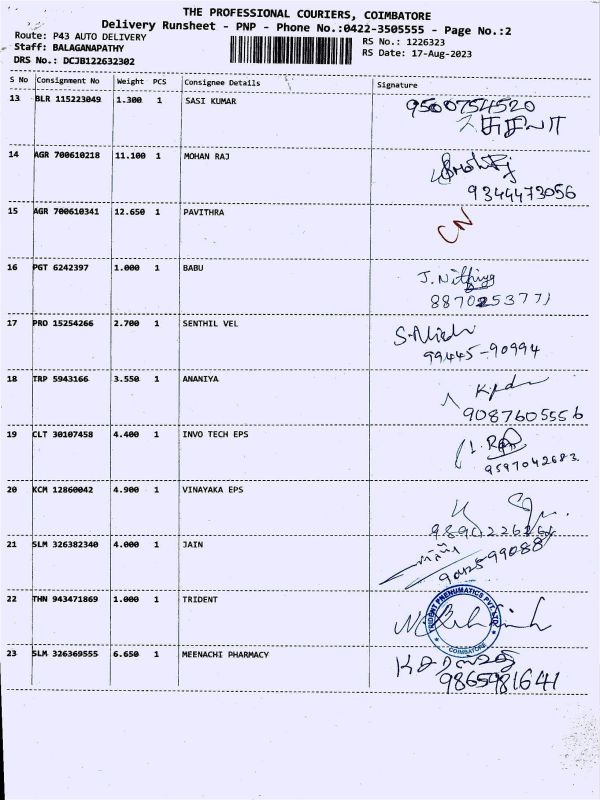 THE PROFESSIONAL COURIERS, COIMBATORE
Delivery Runsheet - PNP - Phone No.:0422-3505555 - Page No.:2
Route: P43 AUTO DELIVERY
Staff: BALAGANAPATHY
DRS No.: DCJB122632302
RS No.: 1226323
RS Date: 17-Aug-2023
S No Consignment No Weight PCS Consignee Details Signature
13 BLR 115223049 1.300 1 SASI KUMAR 9500754520
14 AGR 700610218 11.100 1 MOHAN RAJ
9344473056
15 AGR 700610341 12.650 1 PAVITHRA CN
16 PGT 6242397 1.000 1 BABU J. Nithiya
8870253771
17 PRO 15254266 2.700 1 SENTHIL VEL
99445-90994
18 TRP 5943166 3.550 1 ANANIYA
9087605556
19 CLT 30107458 4.400 1 INVO TECH EPS
9597042683
20 KCM 12860042 4.900 1 VINAYAKA EPS
21 SLM 326382340 4.000 1 JAIN
22 THN 943471869 1.000 1 TRIDENT
TRIDENT PNEUMATICS PVT LTD
COIMBATORE
23 SLM 326369555 6.650 1 MEENACHI PHARMACY
9865981641